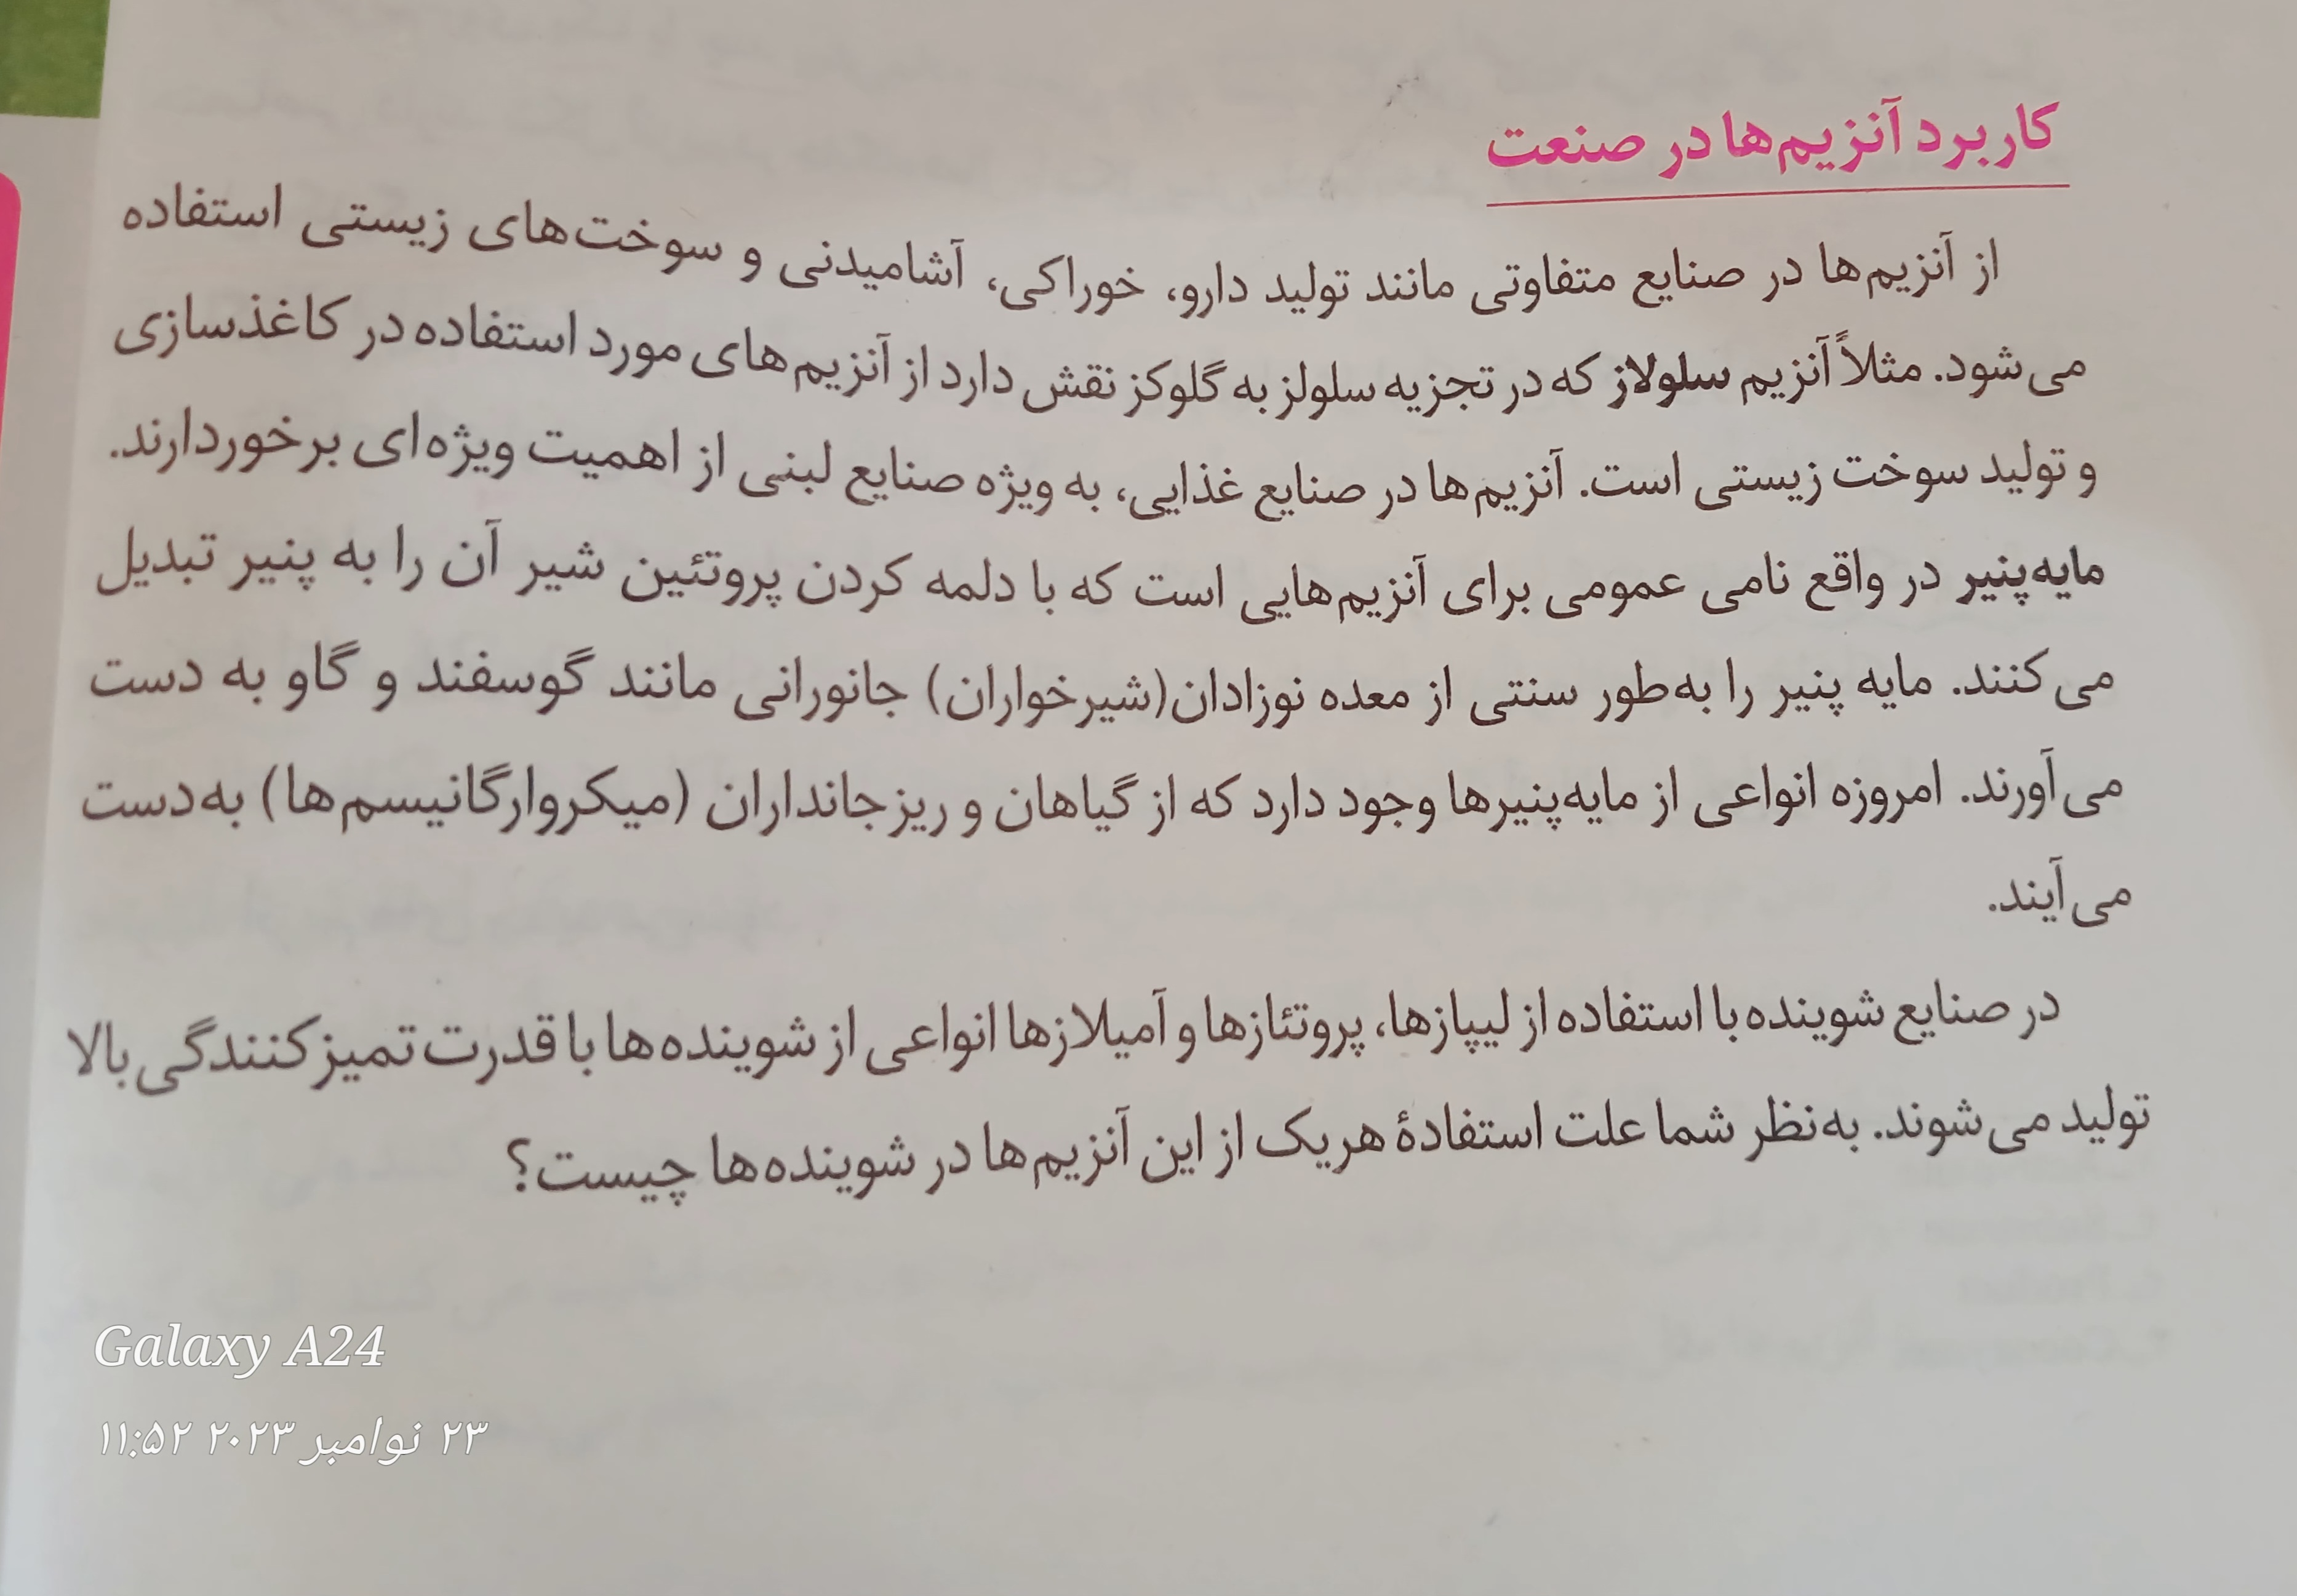 کاربرد آنزیم‌ها در صنعت
از آنزیم‌ها در صنایع متفاوتی مانند تولید دارو، خوراکی، آشامیدنی و سوخت‌های زیستی استفاده
می‌شود. مثلاً آنزیم سلولاز که در تجزیه سلولز به گلوکز نقش دارد از آنزیم‌های مورد استفاده در کاغذسازی
و تولید سوخت زیستی است. آنزیم‌ها در صنایع غذایی، به ویژه صنایع لبنی از اهمیت ویژه‌ای برخوردارند.
مایه‌پنیر در واقع نامی عمومی برای آنزیم‌هایی است که با دلمه کردن پروتئین شیر آن را به پنیر تبدیل
می‌کنند. مایه پنیر را به‌طور سنتی از معده نوزادان(شیرخواران) جانورانی مانند گوسفند و گاو به دست
می‌آورند. امروزه انواعی از مایه‌پنیرها وجود دارد که از گیاهان و ریزجانداران (میکروارگانیسم‌ها) به‌دست
می‌آیند.
در صنایع شوینده با استفاده از لیپازها، پروتئازها و آمیلازها انواعی از شوینده‌ها با قدرت تمیزکنندگی بالا
تولید می‌شوند. به‌نظر شما علت استفادۀ هریک از این آنزیم‌ها در شوینده‌ها چیست؟
Galaxy A24
۲۳ نوامبر ۲۰۲۳ ۱۱:۵۲